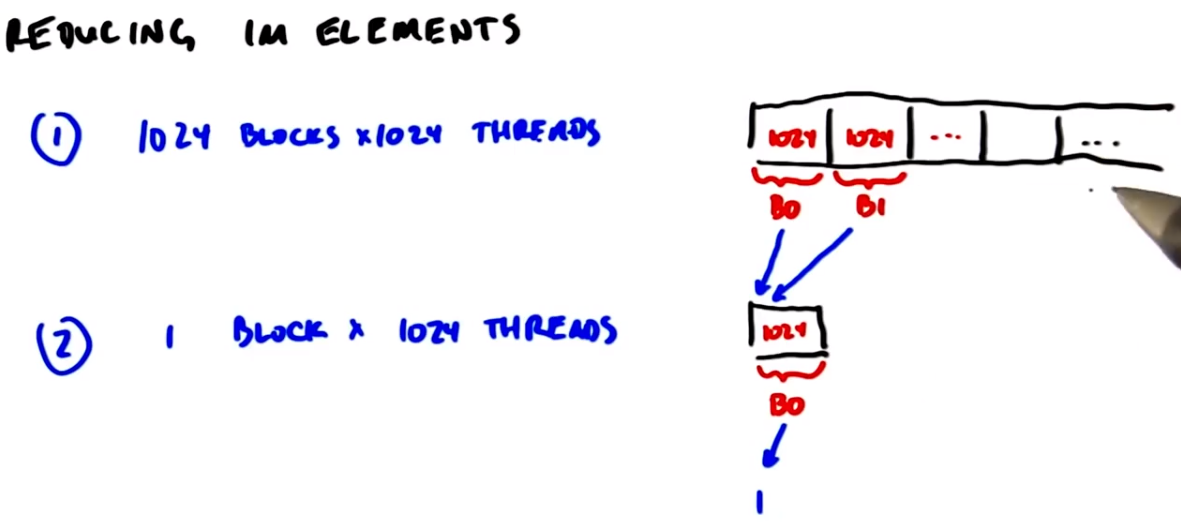 REDUCING 1M ELEMENTS
① 1024 BLOCKS x 1024 THREADS
1024 1024 ... ...
B0 B1
② 1 BLOCK x 1024 THREADS
1024
B0
1